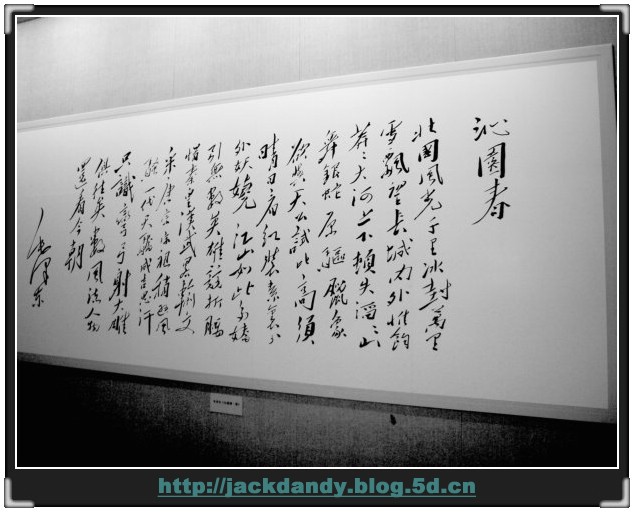 沁園春
北國風光千里冰封萬里
雪飄望長城內外惟餘
莽々大河上下頓失滔々山
舞銀蛇原驅臘象
欲與天公試比高須
晴日看紅裝素裹分
外妖嬈江山如此多嬌
引無數英雄競折腰
惜秦皇漢武略輸文
采唐宗宋祖稍遜風
騷一代天驕成吉思汗
只識彎弓射大雕
俱往矣數風流人物
還看今朝
毛澤東
http://jackdandy.blog.5d.cn